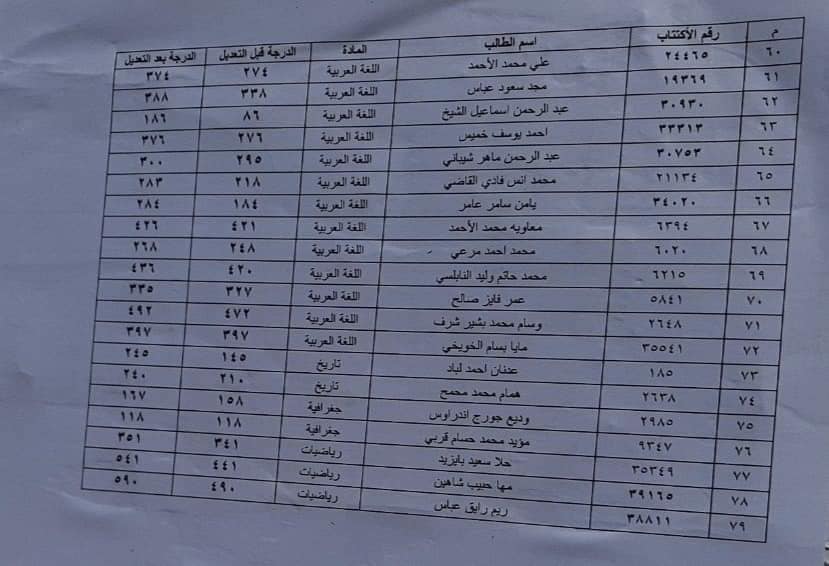 م رقم الأكتتاب اسم الطالب المادة الدرجة قبل التعديل الدرجة بعد التعديل
٦٠ ٢٤٤٦٥ علي محمد الأحمد اللغة العربية ٢٧٤ ٣٧٤
٦١ ١٩٣٦٩ مجد سعود عباس اللغة العربية ٣٣٨ ٣٨٨
٦٢ ٣٠٩٣٠ عبد الرحمن اسماعيل الشيخ اللغة العربية ٨٦ ١٨٦
٦٣ ٣٣٣١٣ احمد يوسف خميس اللغة العربية ٢٧٦ ٣٧٦
٦٤ ٣٠٧٥٣ عبد الرحمن ماهر شيباني اللغة العربية ٢٩٥ ٣٠٠
٦٥ ٢١١٣٤ محمد انس فادي القاضي اللغة العربية ٢١٨ ٢٨٣
٦٦ ٣٤٠٢٠ يامن سامر عامر اللغة العربية ١٨٤ ٢٨٤
٦٧ ٦٣٩٤ معاويه محمد الأحمد اللغة العربية ٤٢١ ٤٢٦
٦٨ ٦٠٢٠ محمد احمد مرعي اللغة العربية ٢٤٨ ٢٦٨
٦٩ ٦٢١٥ محمد حاتم وليد النابلسي اللغة العربية ٤٢٠ ٤٣٦
٧٠ ٥٨٤١ عمر فايز صالح اللغة العربية ٣٢٧ ٣٣٥
٧١ ٢٦٤٨ وسام محمد بشير شرف اللغة العربية ٤٧٢ ٤٩٢
٧٢ ٣٥٥٤١ مايا بسام الخويخي اللغة العربية ٣٩٧ ٣٩٧
٧٣ ١٨٥ عدنان احمد لباد تاريخ ١٤٥ ٢٤٥
٧٤ ٢٦٣٨ همام محمد محمح تاريخ ٢١٠ ٢٤٠
٧٥ ٢٩٨٥ وديع جورج اندراوس جغرافية ١٥٨ ١٦٧
٧٦ ٩٣٤٧ مؤيد محمد حسام قربي جغرافية ١١٨ ١١٨
٧٧ ٣٥٣٤٩ حلا سعيد بايزيد رياضيات ٣٤١ ٣٥١
٧٨ ٣٩١٦٥ مها حبيب شاهين رياضيات ٤٤١ ٥٤١
٧٩ ٣٨٨١١ ريم رايق عباس رياضيات ٤٩٠ ٥٩٠